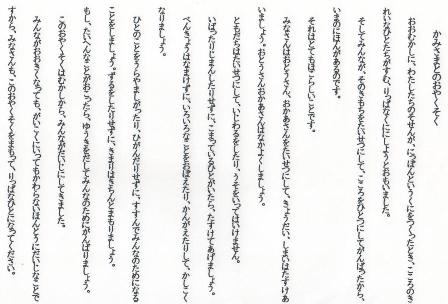 かみさまとのおやくそく
おおむかしに、わたしたちのそせんが、にっぽんというくにをつくったとき、こころのき
れいなひとたちがすむ、りっぱなくににしようとおもいました。
そしてみんなが、そのきもちをたいせつにして、こころをひとつにしてがんばったから、
いまのにほんがあるのです。
それはとてもほこらしいことです。
みなさんはおとうさん、おかあさんをたいせつにして、きょうだい、しまいはたすけあ
いましょう。おとうさんおかあさんはなかよくしましょう。
ともだちはたいせつにして、いじわるをしたり、うそをいってはいけません。
いばったりじまんしたりせずに、こまっているひとがいたら、たすけてあげましょう。
べんきょうはなまけずに、いろいろなことをおぼえたり、かんがえたりして、かしこく
なりましょう。
ひとのことをうらやましがったり、ひがんだりせずに、すすんでみんなのためになる
ことをしましょう。ずるをしたりせずに、きまりはきちんとまもりましょう。
もし、たいへんなことがおこったら、ゆうきをだしてみんなのためにがんばりましょう。
このおやくそくはむかしから、みんながだいじにしてきました。
みんながおおきくなっても、がいこくにいってもかわらないほんとうにだいじなことで
すから、みなさんも、このおやくそくをまもって、りっぱなひとになってください。